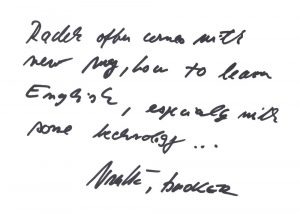 Radek often comes with
new way, how to learn
English, especially with
some technology...